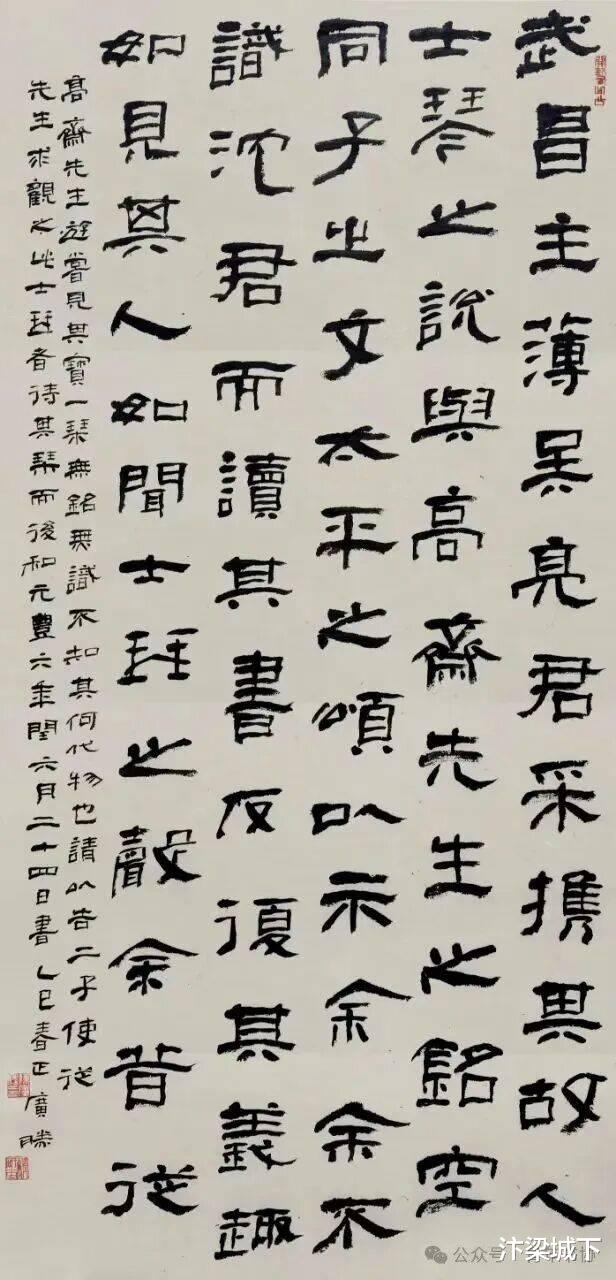 武昌主薄吳亮君采携其故人
士琴之說與高齋先生之銘空
同子之文太平之頌以示余余不
識沈君而讀其書反復其義趣
如見其人如聞士琴之聲余昔從
高齋先生遊嘗見其寶一琴無銘無識不知其何代物也請以告二子使從
先生求觀之此士琴者待其琴而後和元豐六年閏六月二十四日書乙巳春正廣勝
公众号
汴梁城下